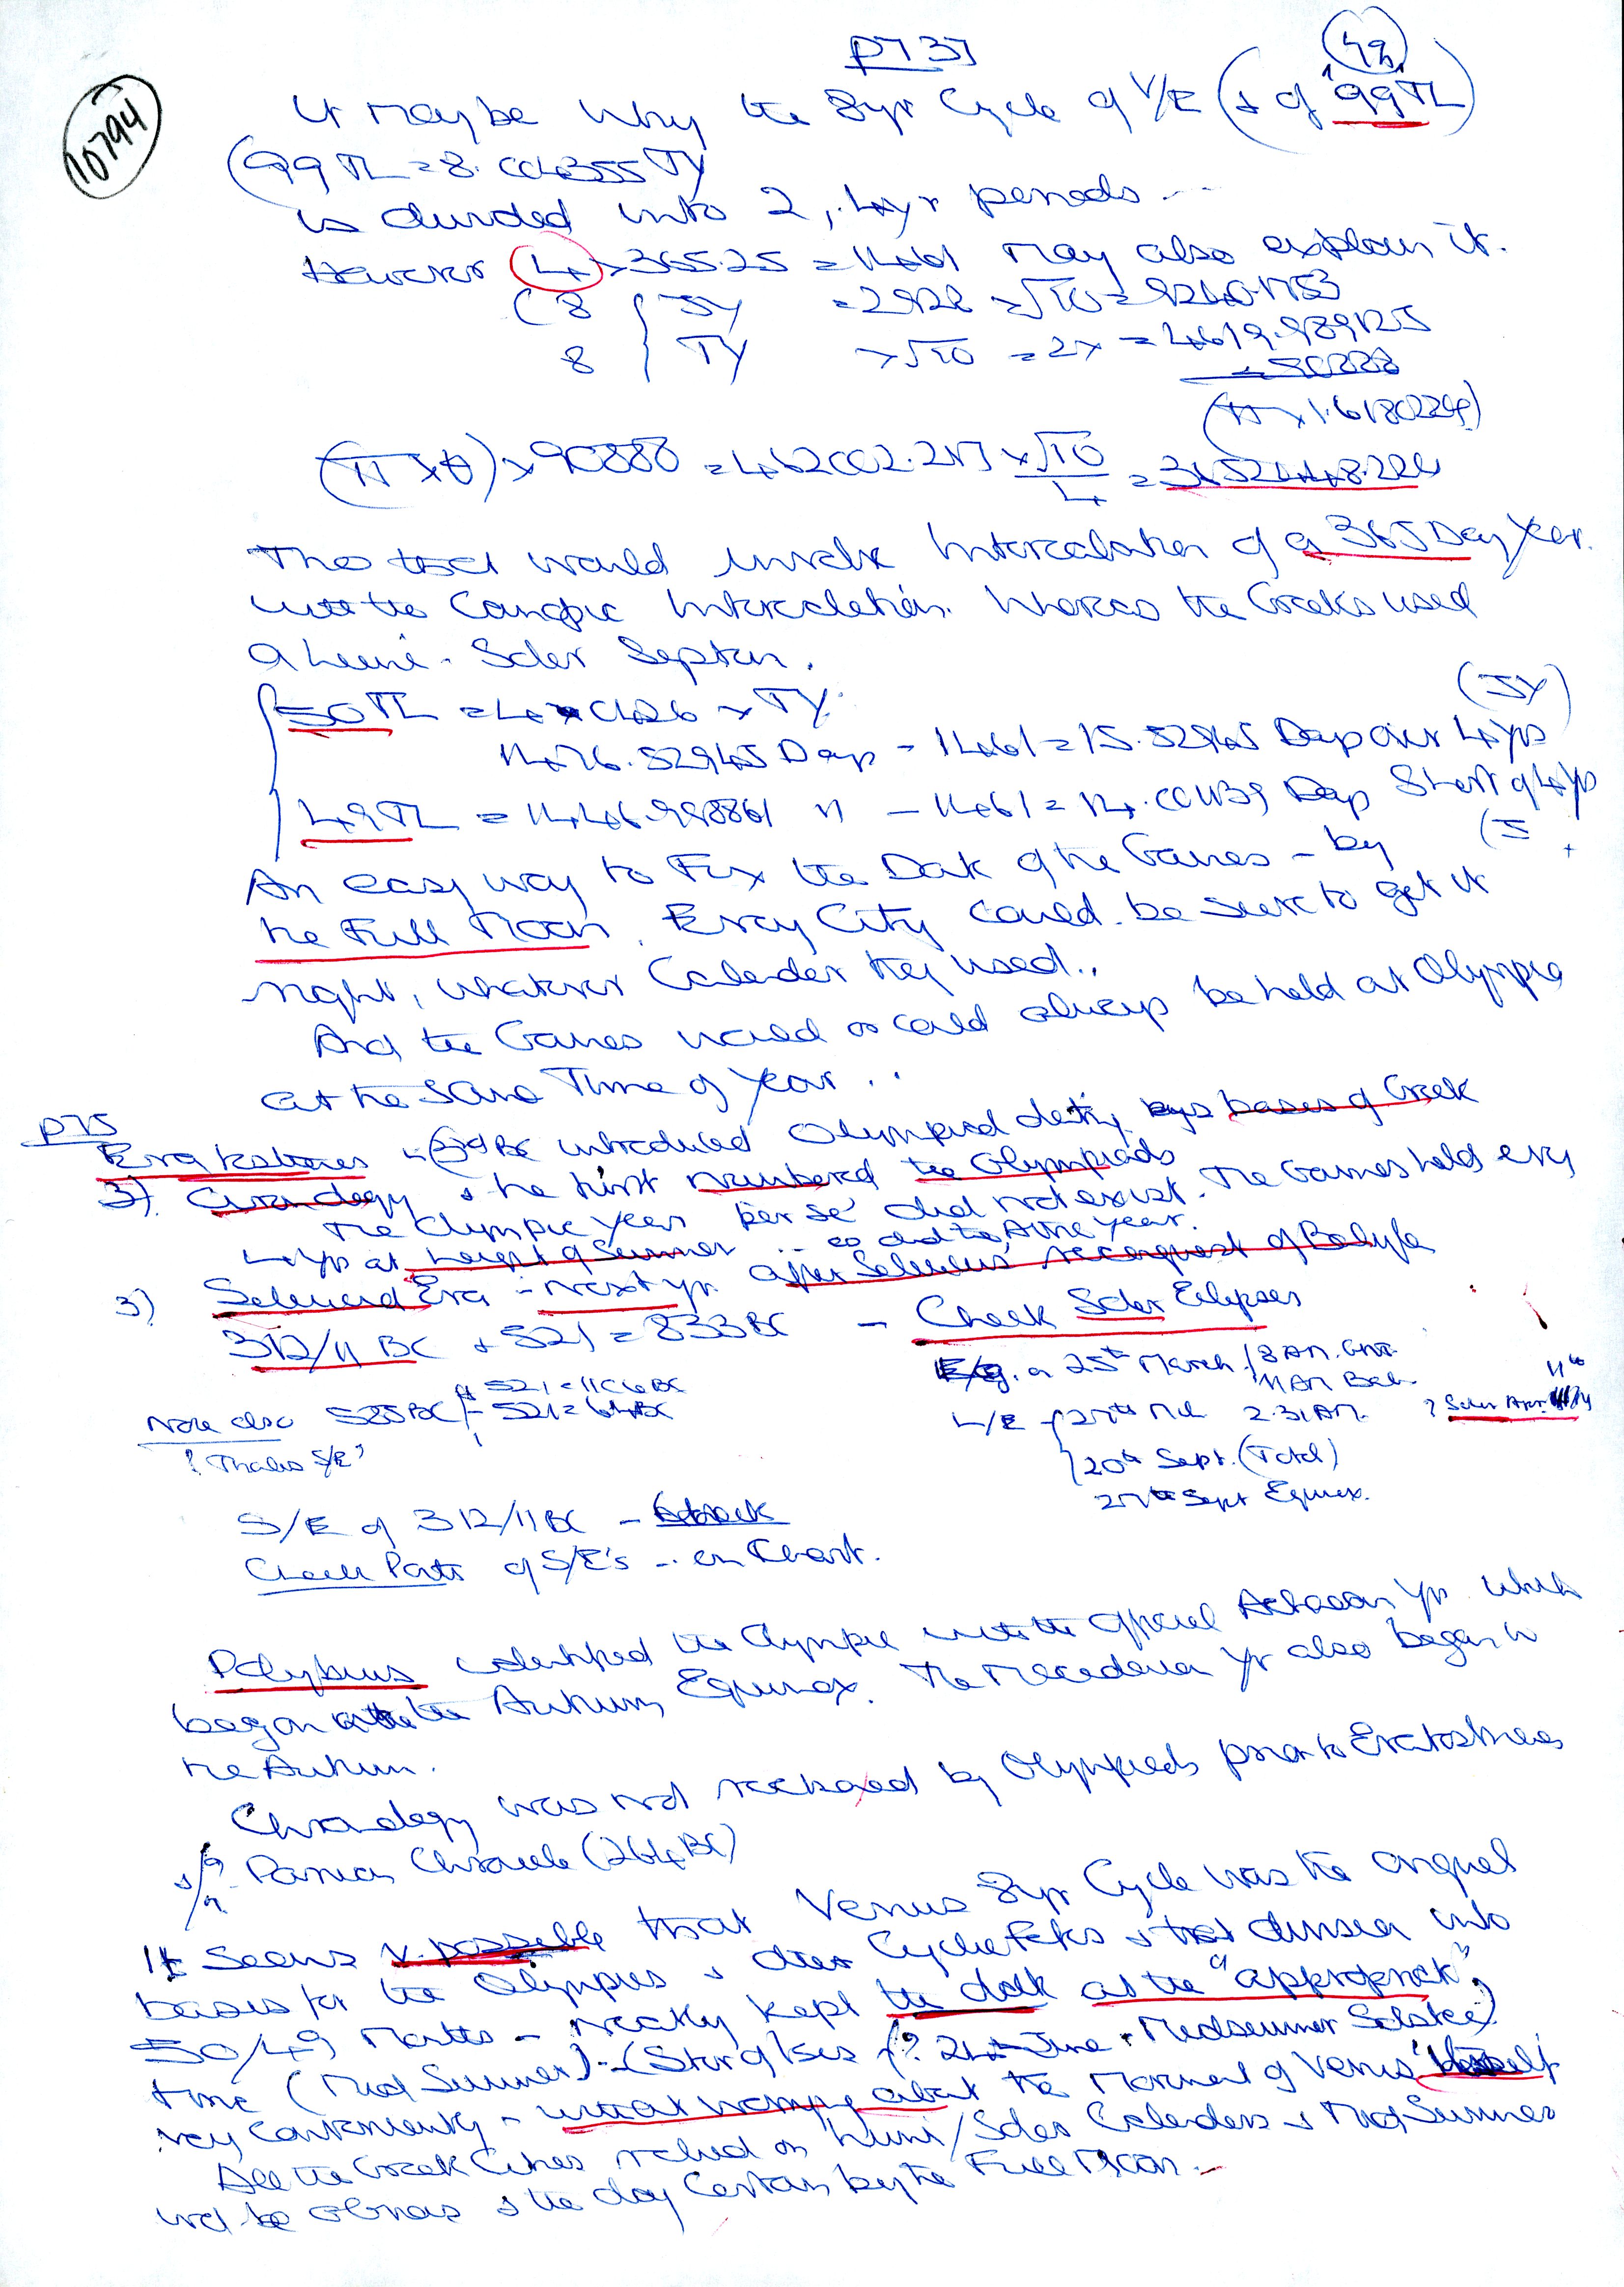 10794
P737
49
It may be why the 8yr Cycle of V/E (& of 99TL)
(99TL = 8.004355 TY
is divided into 2, 4yr periods ...
However 4 × 365.25 = 1461 may also explain it.
( 8 { JY = 2922 × √10 = 9240.1753
8 { TY × √10 = 2 × = 4619.989125
÷ 90888
(π × 1.6180224)
(π × θ) × 90888 = 462002.217 × √10 / 4 = 3652448.224
This would involve Intercalation of a 365 Day Year.
with the Canopic Intercalation. Whereas the Greeks used
a Luni-Solar System.
50TL = 4.0426 × TY. (JY)
1476.52945 Days - 1461 = 15.52945 Days over 4yrs
49TL = 1446.998861 " - 1461 = 14.001139 Days Short of 4yrs
An easy way to Fix the Date of the Games - by
the Full Moon. Every City could be sure to get it
right, whatever Calendar they used..
And the Games would or could always be held at Olympia
at the Same Time of Year ..
P75
Eratosthenes in BC introduced Olympiad dating bases of Greek
3) Chronology & he first numbered the Olympiads
The Olympic Year 'per se' did not exist. The Games held every
4yrs at height of Summer .. as did the Attic Year.
3) Seleucid Era - next yr. after Seleucus' reconquest of Babylon
312/11 BC + 521 = 833BC - Check Solar Eclipses
E/g. on 25th March / 8 AM. GMT.
11 AM Bab.
Note also 585BC + 521 = 1106BC
- 521 = 64BC
? Thales S/E?
L/E 2.31AM. ? Solar Apr.
20th Sept. (Total)
27th Sept Equinox.
S/E of 312/11BC -
Check Paths of S/E's - on Chart.
Polybius identified the Olympic with the official Achaean Yr which
began at the Autumn Equinox. The Macedonian Yr also began in
the Autumn.
Chronology was not reckoned by Olympiads prior to Eratosthenes
& Parian Chronicle (264BC)
It seems v. possible that Venus 8yr Cycle was the original
basis for the Olympics & other Cycle & that division into
50/49 Months - neatly kept the date at the "appropriate"
time (Mid Summer) - (Star of Isis (? 21st June. Midsummer Solstice)
very conveniently - without worrying about the Movement of Venus herself
All the Greek Cities relied on Luni/Solar Calendars & Mid Summer
wd be obvious & the day Certain by the Full Moon. -